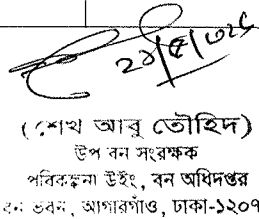 (শেখ আবু তৌহিদ)
উপ বন সংরক্ষক
পরিকল্পনা উইং, বন অধিদপ্তর
বন ভবন, আগারগাঁও, ঢাকা-১২০৭